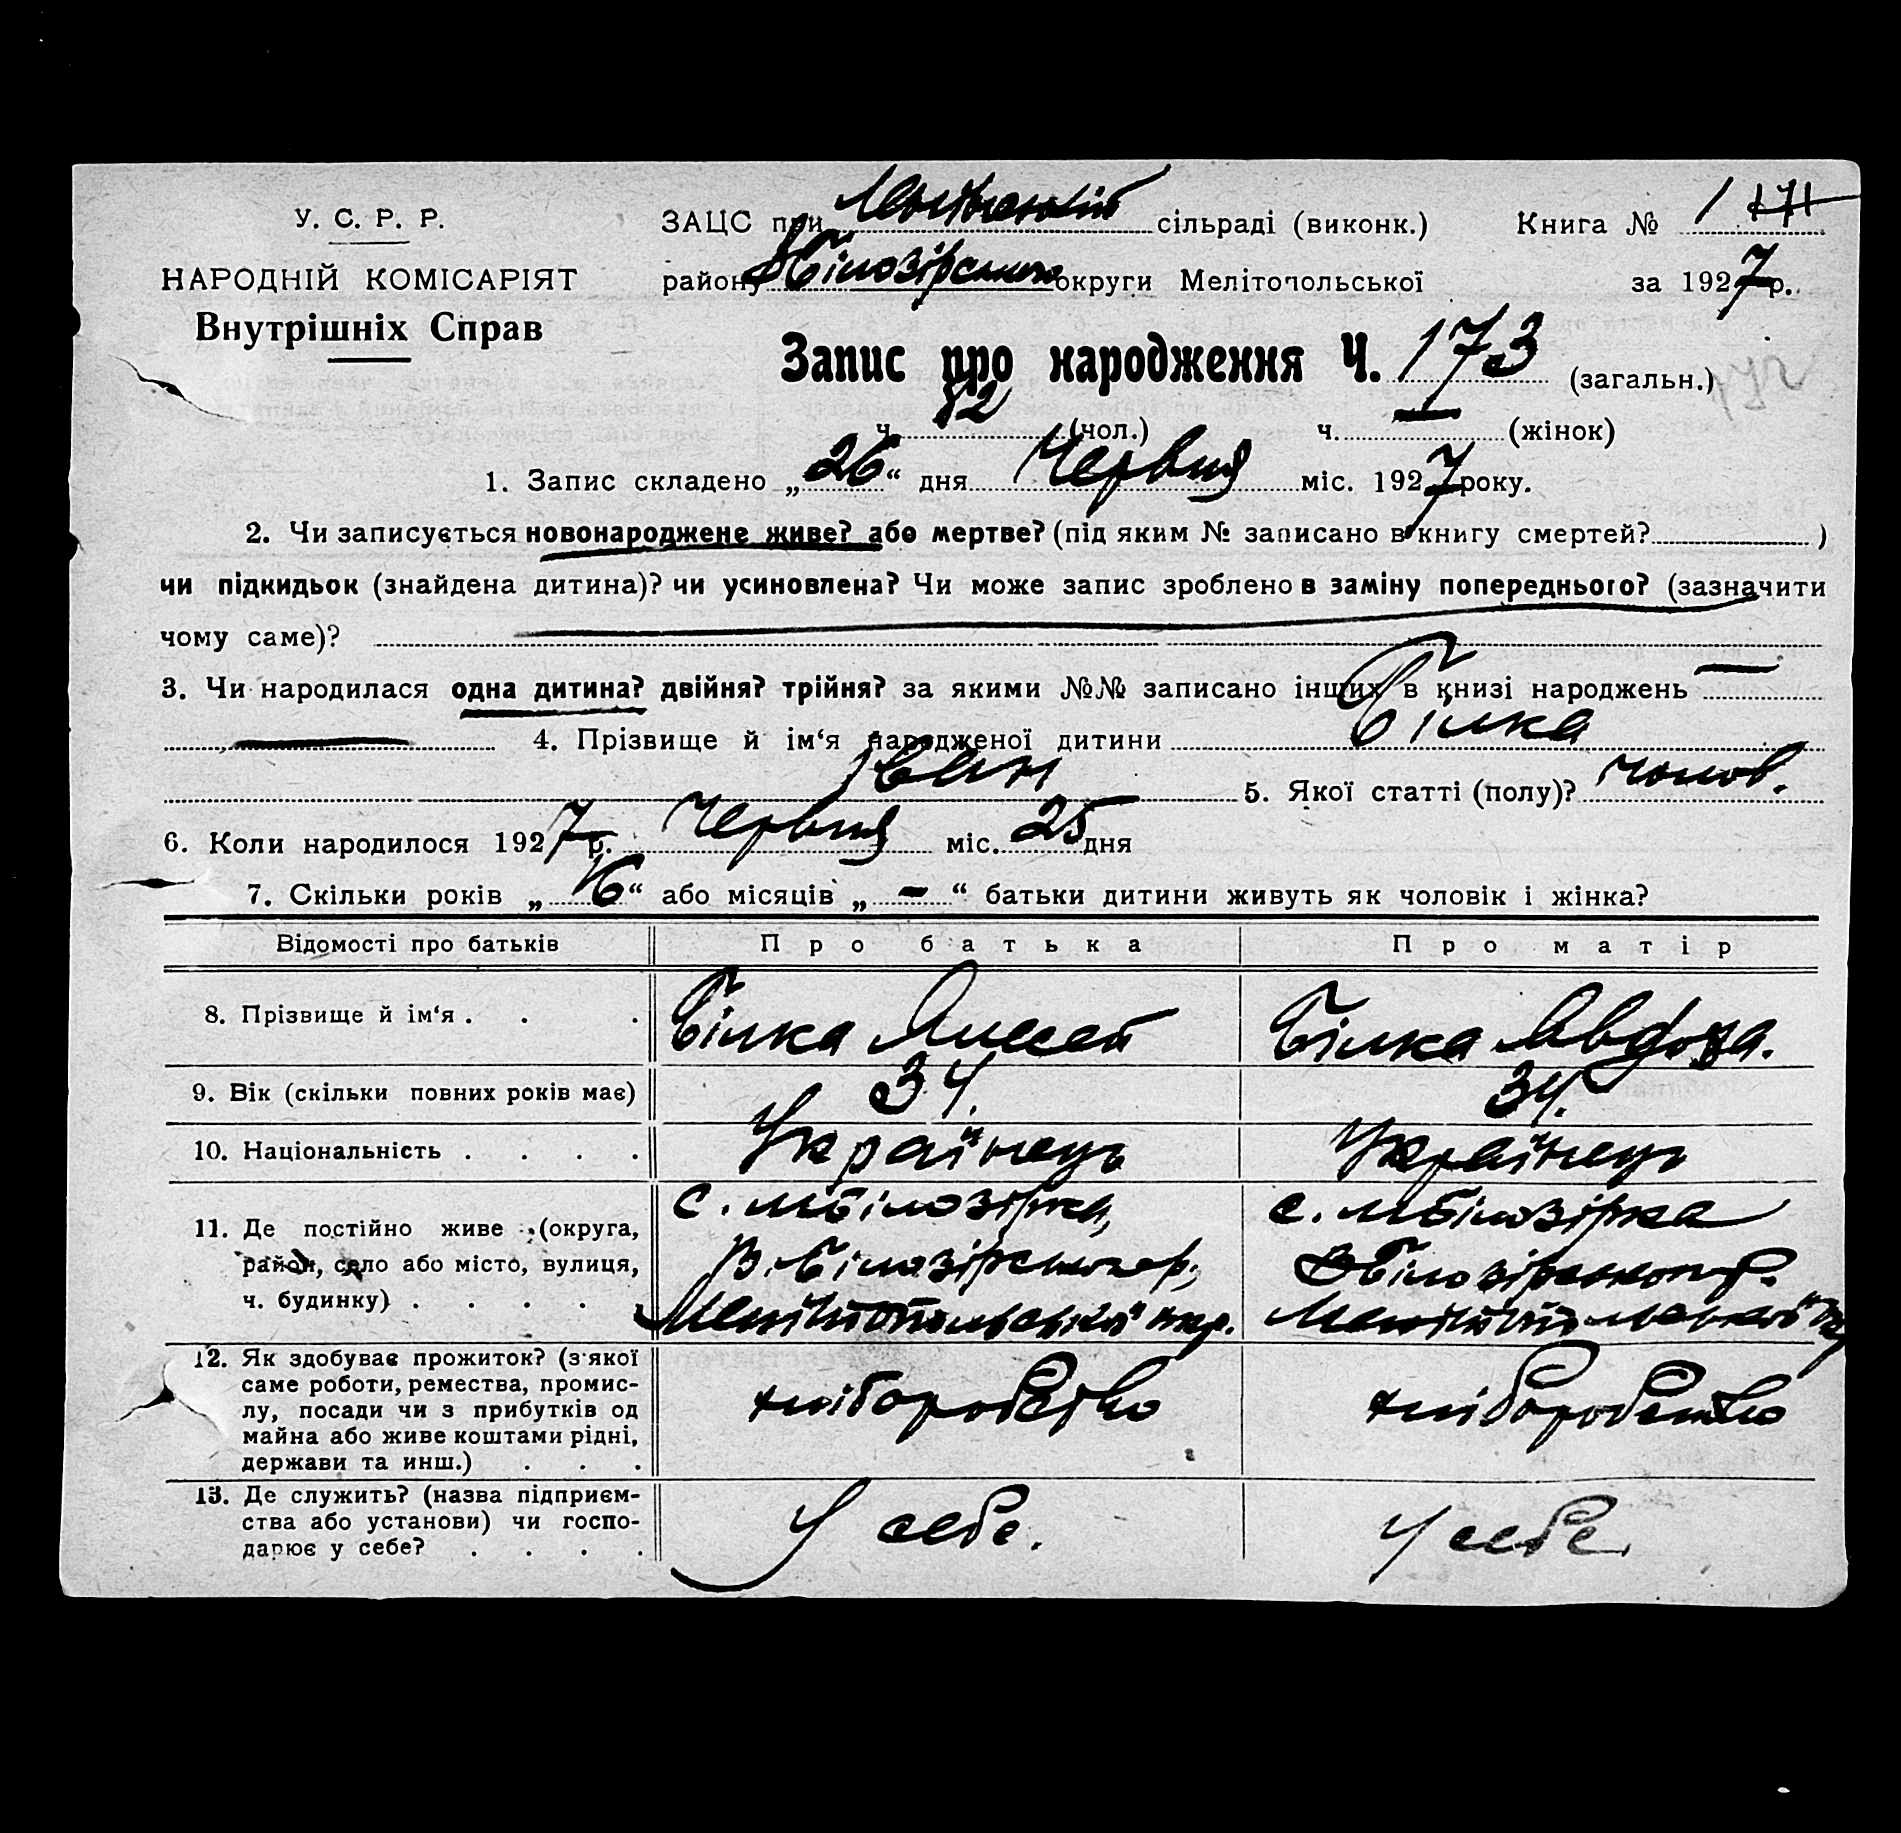 У. С. Р. Р.
НАРОДНІЙ КОМІСАРІЯТ
Внутрішніх Справ
ЗАЦС при сільраді (виконк.) Книга № 1 171
району Вбілозірського округи Мелітопольської за 1927 р.
Запис про народження Ч. 173 (загальн.)
ч. 82 (чол.) ч. — (жінок)
1. Запис складено „26“ дня Червня міс. 1927 року.
2. Чи записується новонароджене живе? або мертве? (під яким № записано в книгу смертей? )
чи підкидьок (знайдена дитина)? чи усиновлена? Чи може запис зроблено в заміну попереднього? (зазначити
чому саме)?
3. Чи народилася одна дитина? двійня? трійня? за якими №№ записано інших в книзі народжень —
— 4. Прізвище й ім‘я народженої дитини Білка
Іван 5. Якої статті (полу)? чолов.
6. Коли народилося 1927 р. Червня міс. 25 дня
7. Скільки років „16“ або місяців „-“ батьки дитини живуть як чоловік і жінка?
Відомості про батьків Про батька Про матір
8. Прізвище й ім‘я . . . Білка Білка
9. Вік (скільки повних років має) 34. 34.
10. Національність . . . . Українець Українець
11. Де постійно живе (округа, с. мбілозірка, с. мбілозірка
район, село або місто, вулиця, В.білозірського р, Вбілозірського р.
ч. будинку) . . . . Мелітопольської окр. Мелітопольської окр
12. Як здобуває прожиток? (з якої
саме роботи, ремества, промис-
лу, посади чи з прибутків од хліборобство хліборобство
майна або живе коштами рідні,
держави та инш.) . . .
13. Де служить? (назва підприєм-
ства або установи) чи госпо- У себе. У себе
дарює у себе? . . . .